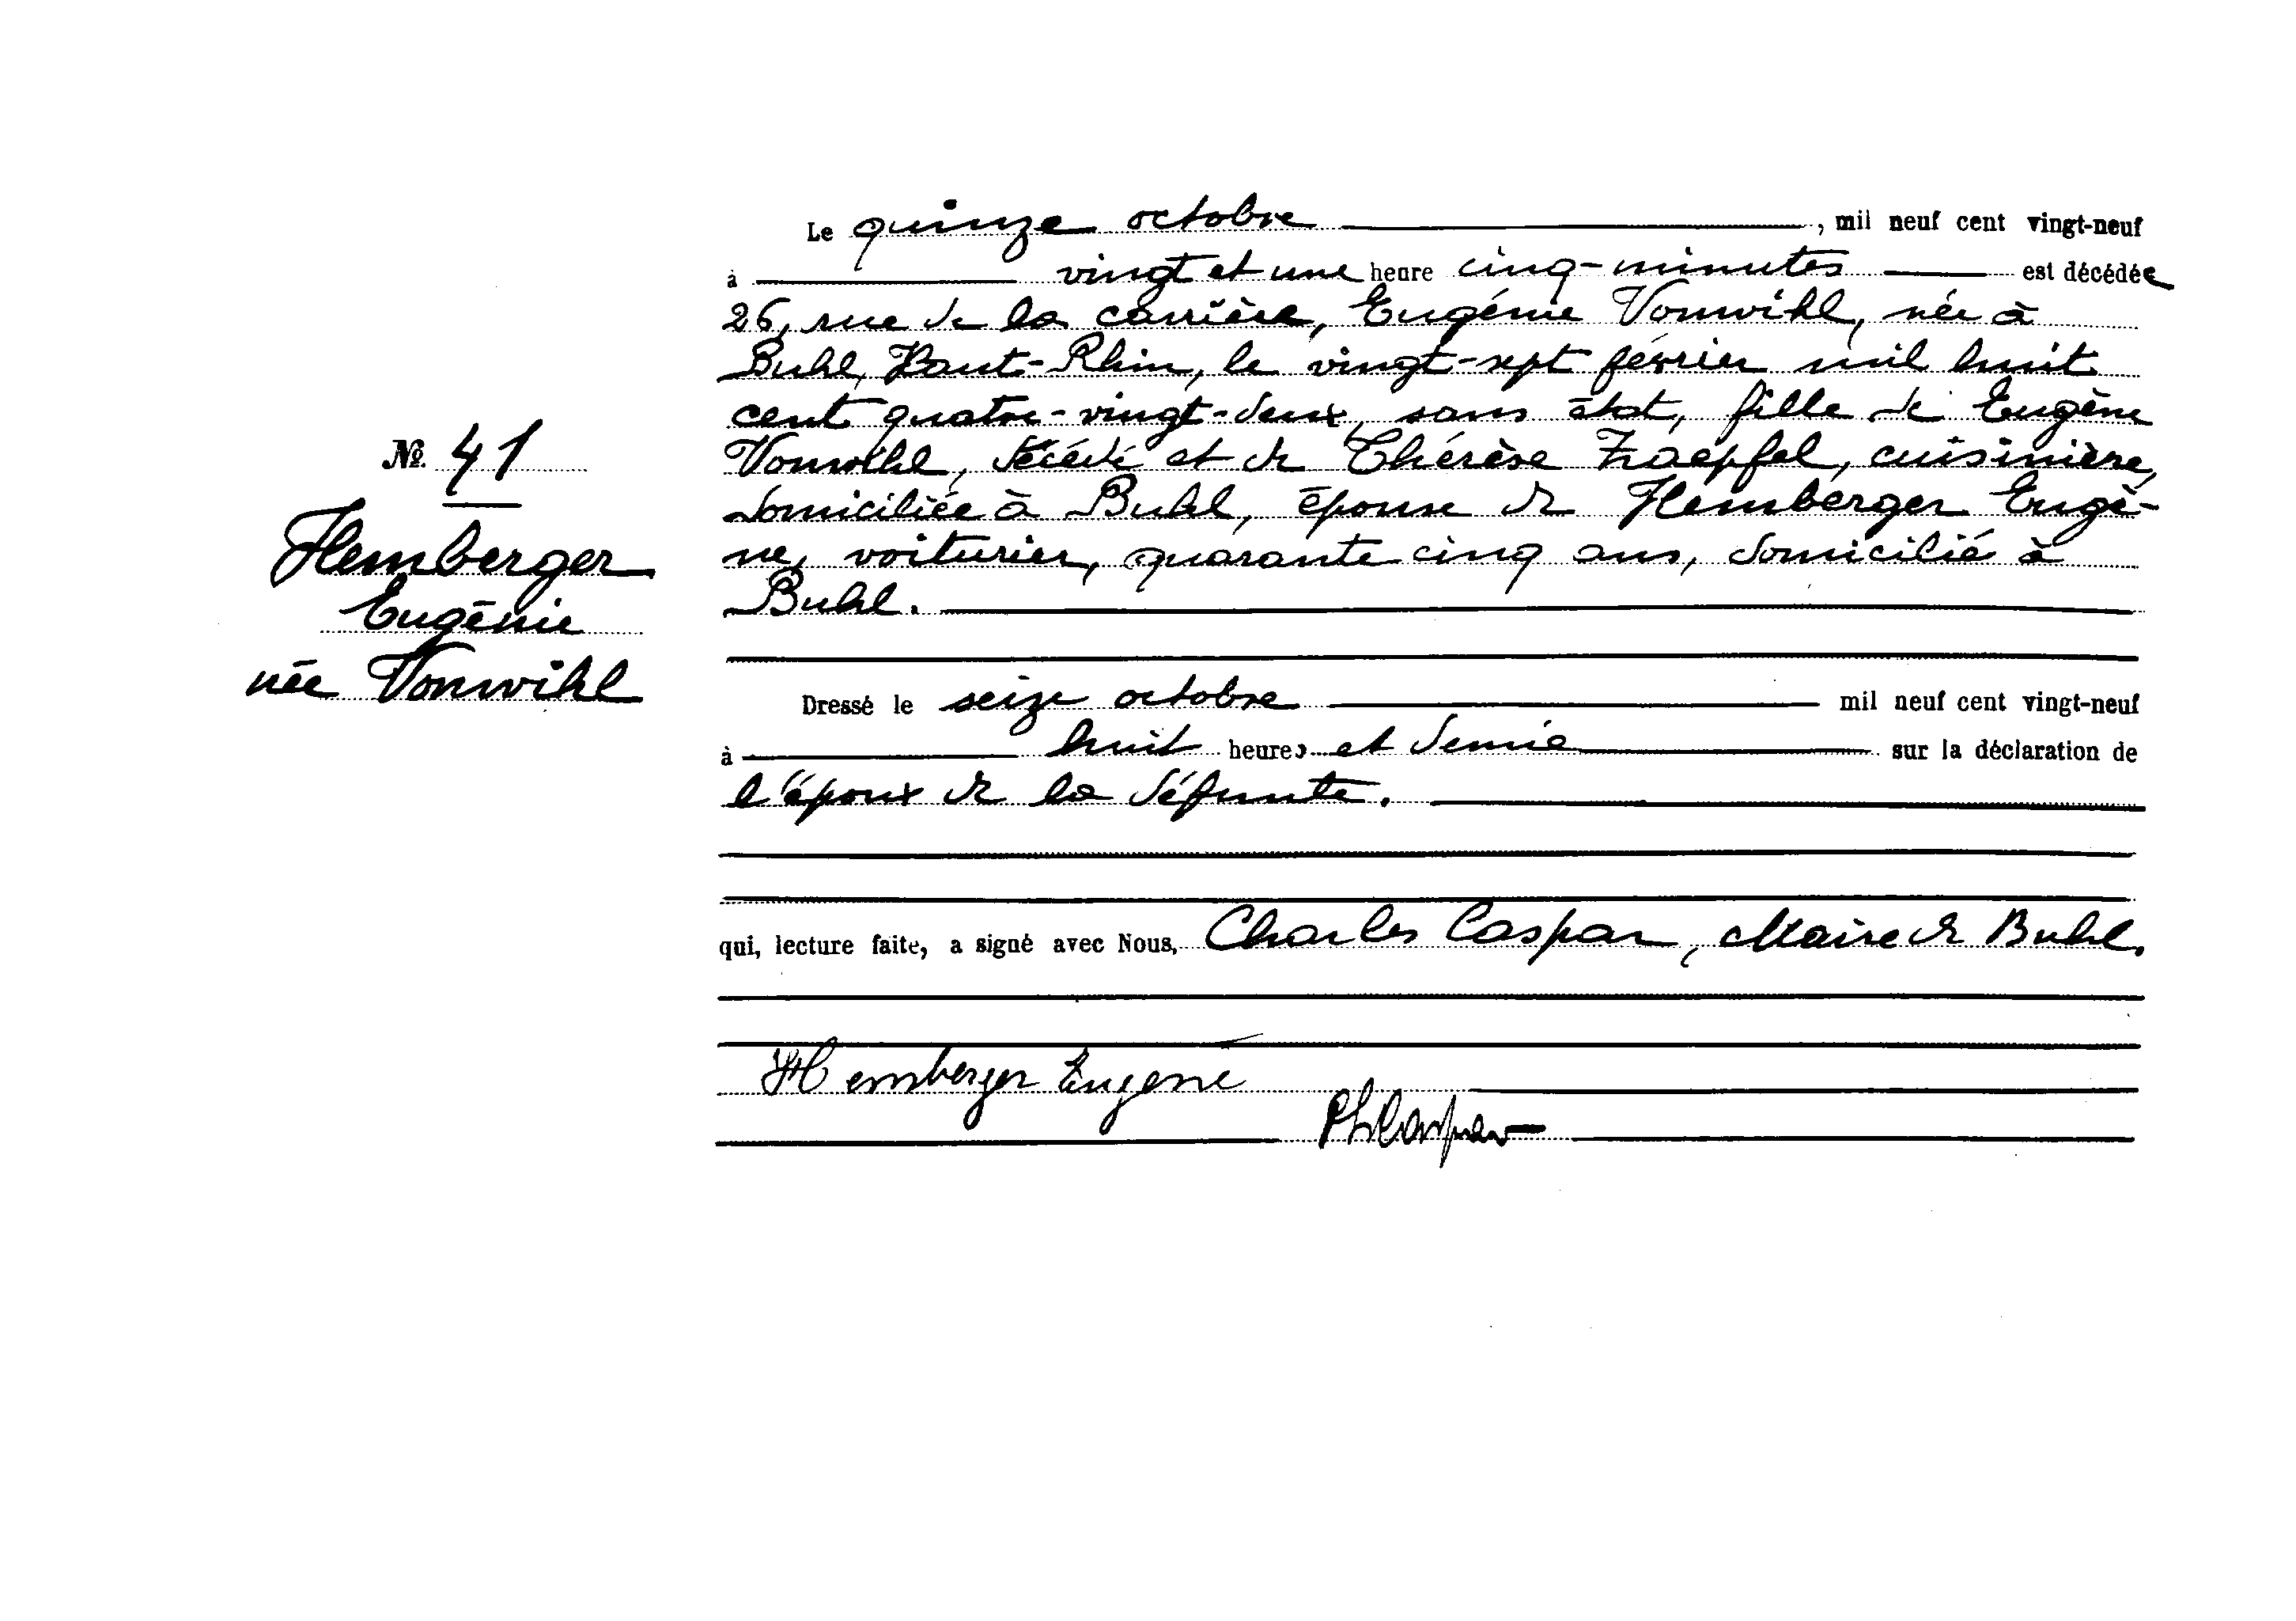 Le quinze octobre, mil neuf cent vingt-neuf
à vingt et une heure cinq-minutes est décédée
26, rue de la carrière, Eugénie Vonwihl, née à
Buhl, Haut-Rhin, le vingt-sept février mil huit
cent quatre-vingt-deux, sans état, fille de Eugène
Vonwihl, décédé et de Thérèse Zaepfel, cuisinière,
domiciliée à Buhl, épouse de Hemberger Eugè-
ne, voiturier, quarante cinq ans, domicilié à
Buhl.
№ 41
Hemberger
Eugénie
née Vonwihl
Dressé le seize octobre mil neuf cent vingt-neuf
à huit heures et demie sur la déclaration de
l'époux de la défunte.
qui, lecture faite, a signé avec Nous, Charles Caspar, Maire de Buhl.
Hemberger Eugène
Ch Caspar